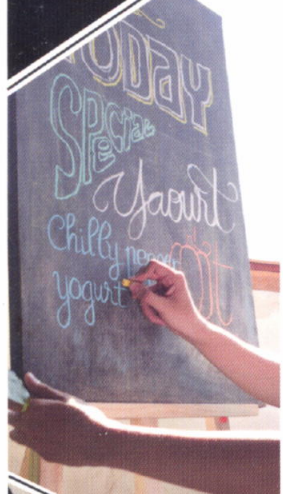 TODAY
SPecial
Yaourt
Chilly
yogurt